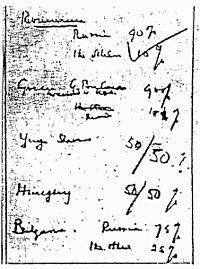 Roumania
Russia 90%
The others 10%
Greece G. Britain 90%
Russia 10%
Yugoslavia 50/50%
Hungary 50/50 %
Bulgaria. Russia 75%
the others 25%